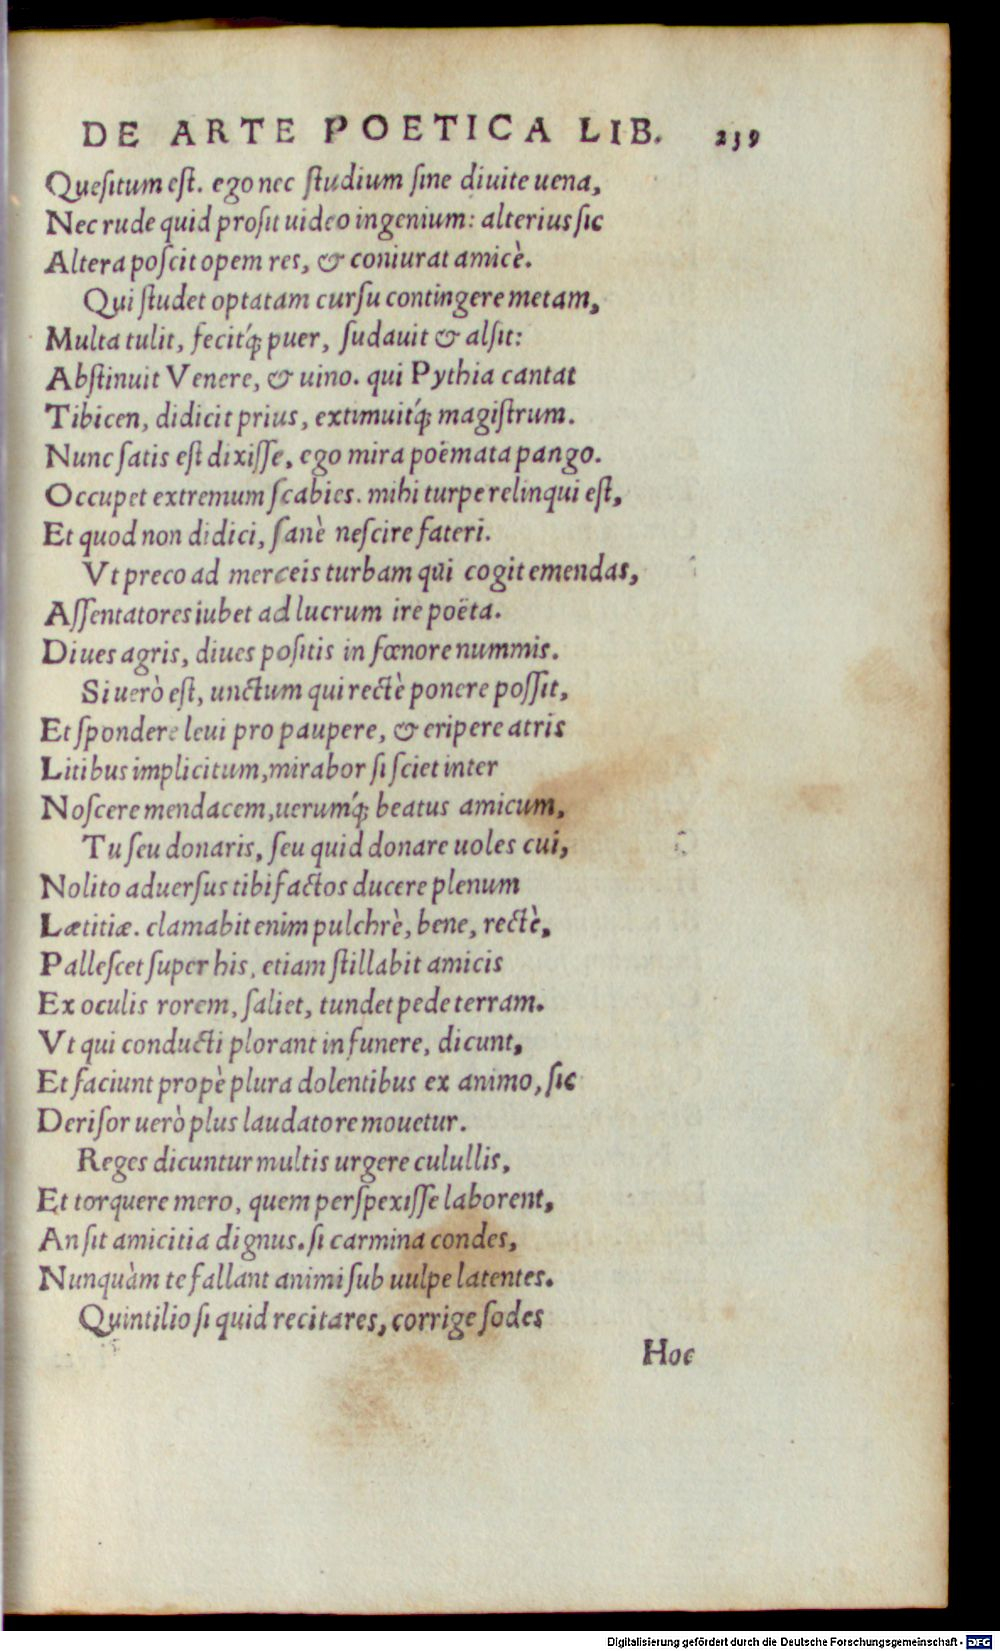 DE ARTE POETICA LIB. 239
Quesitum eſt. ego nec ſtudium ſine diuite uena,
Nec rude quid proſit uideo ingenium: alterius ſic
Altera poſcit opem res, & coniurat amicè.
Qui ſtudet optatam curſu contingere metam,
Multa tulit, fecitq́ꝫ puer, ſudauit & alſit:
Abſtinuit Venere, & uino. qui Pythia cantat
Tibicen, didicit prius, extimuitq́ꝫ magiſtrum.
Nunc ſatis eſt dixiſſe, ego mira poëmata pango.
Occupet extremum ſcabies. mihi turpe relinqui eſt,
Et quod non didici, ſanè neſcire fateri.
Vt preco ad merceis turbam qui cogit emendas,
Aſſentatores iubet ad lucrum ire poëta.
Diues agris, diues poſitis in fœnore nummis.
Si uerò eſt, unctum qui rectè ponere poſſit,
Et ſpondere leui pro paupere, & eripere atris
Litibus implicitum, mirabor ſi ſciet inter
Noſcere mendacem, uerumq́ꝫ beatus amicum,
Tu ſeu donaris, ſeu quid donare uoles cui,
Nolito aduerſus tibi factos ducere plenum
Lætitiæ. clamabit enim pulchrè, bene, rectè,
Palleſcet ſuper his, etiam ſtillabit amicis
Ex oculis rorem, ſaliet, tundet pede terram.
Vt qui conducti plorant in funere, dicunt,
Et faciunt propè plura dolentibus ex animo, ſic
Deriſor uerò plus laudatore mouetur.
Reges dicuntur multis urgere culullis,
Et torquere mero, quem perſpexiſſe laborent,
An ſit amicitia dignus. ſi carmina condes,
Nunquàm te fallant animi ſub uulpe latentes.
Quintilio ſi quid recitares, corrige ſodes
Hoc
Digitalisierung gefördert durch die Deutsche Forschungsgemeinschaft - DFG